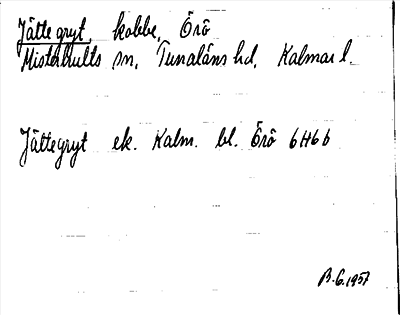 Jättegryt, kobbe, Örö
Misterhults sn, Tunaläns hd, Kalmar l.
Jättegryt ek. Kalm. bl. Örö 6H6b
B.G. 1957